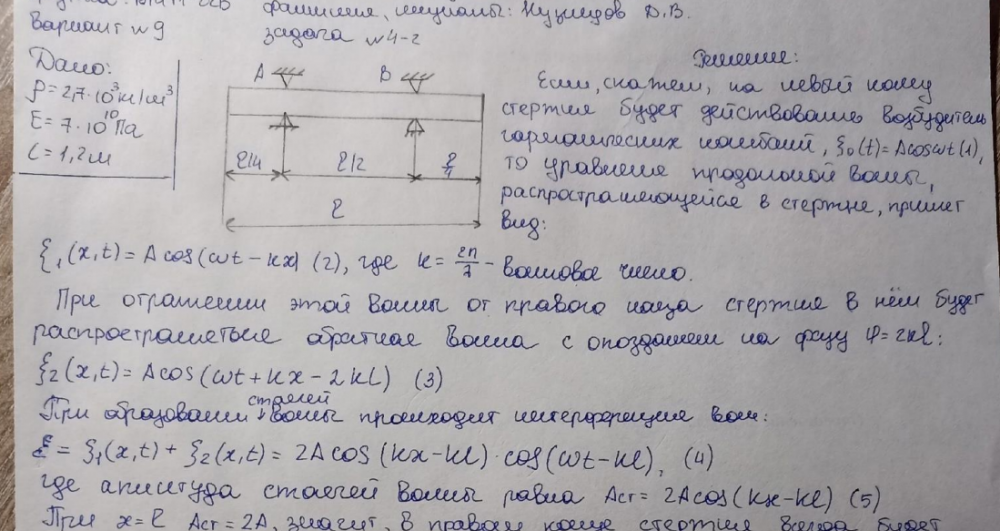 фамилия, инициалы: Кузнецов Д.В.
Вариант №9
задача №4-2
Дано:
ρ=2,7·10³кг/м³
E=7·10¹⁰Па
l=1,2м
A
B
l/4
l/2
l/4
l
Решение:
Если, скажем, на левый конец
стержня будет действовать возбудитель
гармонических колебаний, ξ₀(t)=Acosωt(1),
то уравнение продольной волны,
распространяющейся в стержне, примет
вид:
ξ₁(x,t)=Acos(ωt-kx) (2), где k=2π/λ - волновое число.
При отражении этой волны от правого конца стержня в нём будет
распространяться обратная волна с опозданием на фазу φ=2kl:
ξ₂(x,t)=Acos(ωt+kx-2kl) (3)
При образовании стоячей волны происходит интерференция волн:
ξ=ξ₁(x,t)+ξ₂(x,t)=2Acos(kx-kl)·cos(ωt-kl), (4)
где амплитуда стоячей волны равна Aст=2Acos(kx-kl) (5)
При x=l Aст=2A, значит, в правом конце стержня всегда будет